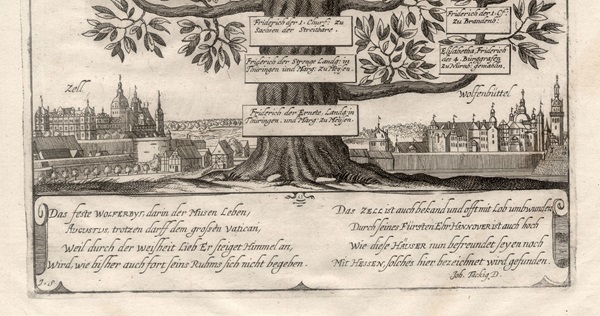 Friderich der 1. Churf: zu
Sachsen der Streitbare.
Friderich der 1. Cf:
zu Brandenb:
Friderich der Strenge Landg: in
Thüringen und Marg: zu Meysen.
Elisabetha Friderich
des 4. Burggrafen
zu Nürnb: gemahlin.
Friderich der Ernste, Landg: in
Thüringen, und Marg: zu Meysen.
Zell
Wolfenbüttel
Das feste WOLFERBYT, darin der Musen Leben,
AUGUSTUS, trotzen darff dem großen Vatican,
Weil durch der Weisheit Lieb Er steiget Himmel an,
Wird, wie bisher auch fort seins Ruhms sich nicht begeben.
Das ZELL ist auch bekand und offt mit Lob umbwunden
Durch seines Fürsten Ehr HANNOVER ist auch hoch
Wie diese HÄUSER nun befreundet seyen noch
Mit HESSEN, solches hier bezeichnet wird gefunden.
Joh. Tackig D.